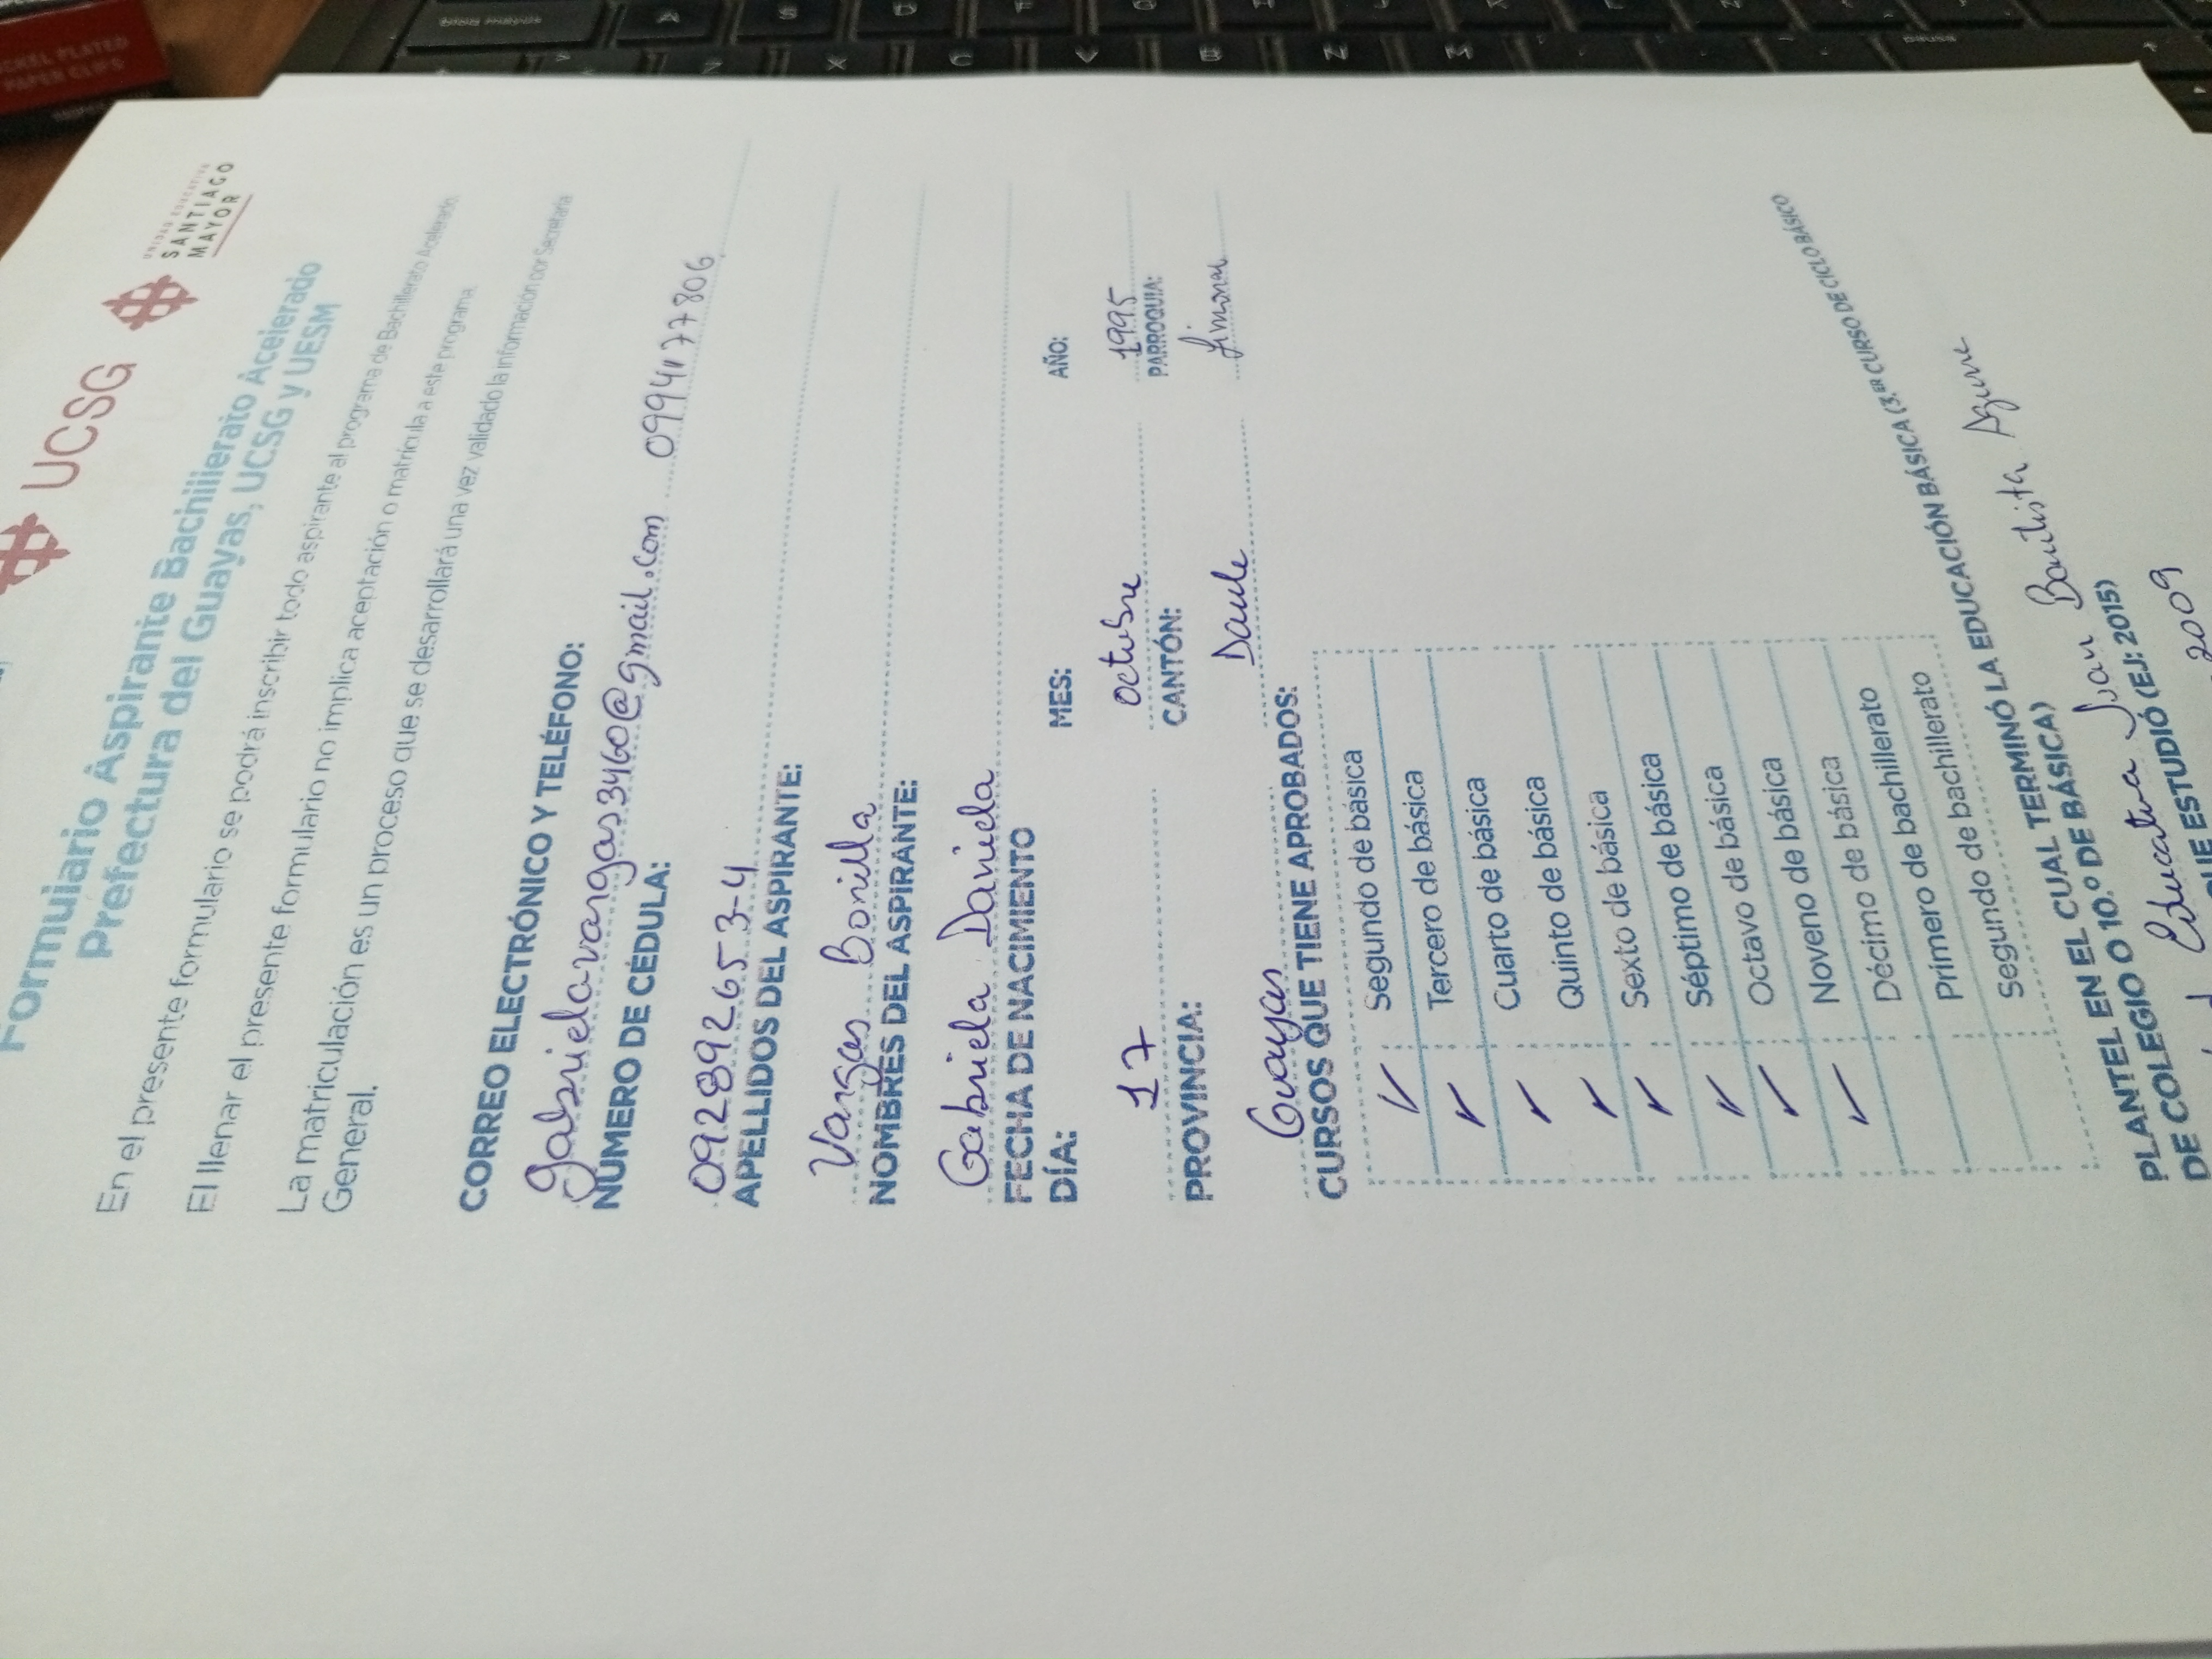 UCSG
UNIDAD EDUCATIVA
SANTIAGO
MAYOR
Formulario Aspirante Bachillerato Acelerado
Prefectura del Guayas, UCSG y UESM
En el presente formulario se podrá inscribir todo aspirante al programa de Bachillerato Acelerado.
El llenar el presente formulario no implica aceptación o matrícula a este programa.
La matriculación es un proceso que se desarrollará una vez validado la información por Secretaría
General.
CORREO ELECTRÓNICO Y TELÉFONO:
gabrielavargas3460@gmail.com 0994177806
NÚMERO DE CÉDULA:
092892653-4
APELLIDOS DEL ASPIRANTE:
Vargas Bonilla
NOMBRES DEL ASPIRANTE:
Gabriela Daniela
FECHA DE NACIMIENTO
DÍA: MES: AÑO:
17 octubre 1995
PROVINCIA: CANTÓN: PARROQUIA:
Guayas Daule Limonal
CURSOS QUE TIENE APROBADOS:
✓ Segundo de básica
✓ Tercero de básica
✓ Cuarto de básica
✓ Quinto de básica
✓ Sexto de básica
✓ Séptimo de básica
✓ Octavo de básica
✓ Noveno de básica
Décimo de bachillerato
Primero de bachillerato
Segundo de bachillerato
PLANTEL EN EL CUAL TERMINÓ LA EDUCACIÓN BÁSICA (3.ER CURSO DE CICLO BÁSICO
DE COLEGIO O 10.º DE BÁSICA)
Educativa Juan Bautista Aguirre
QUE ESTUDIÓ (EJ: 2015)
2009
NICKEL PLATED
PAPER CLIPS
Bloq Mayús
A S D F G H J K L
Z X C V B N M
pausa